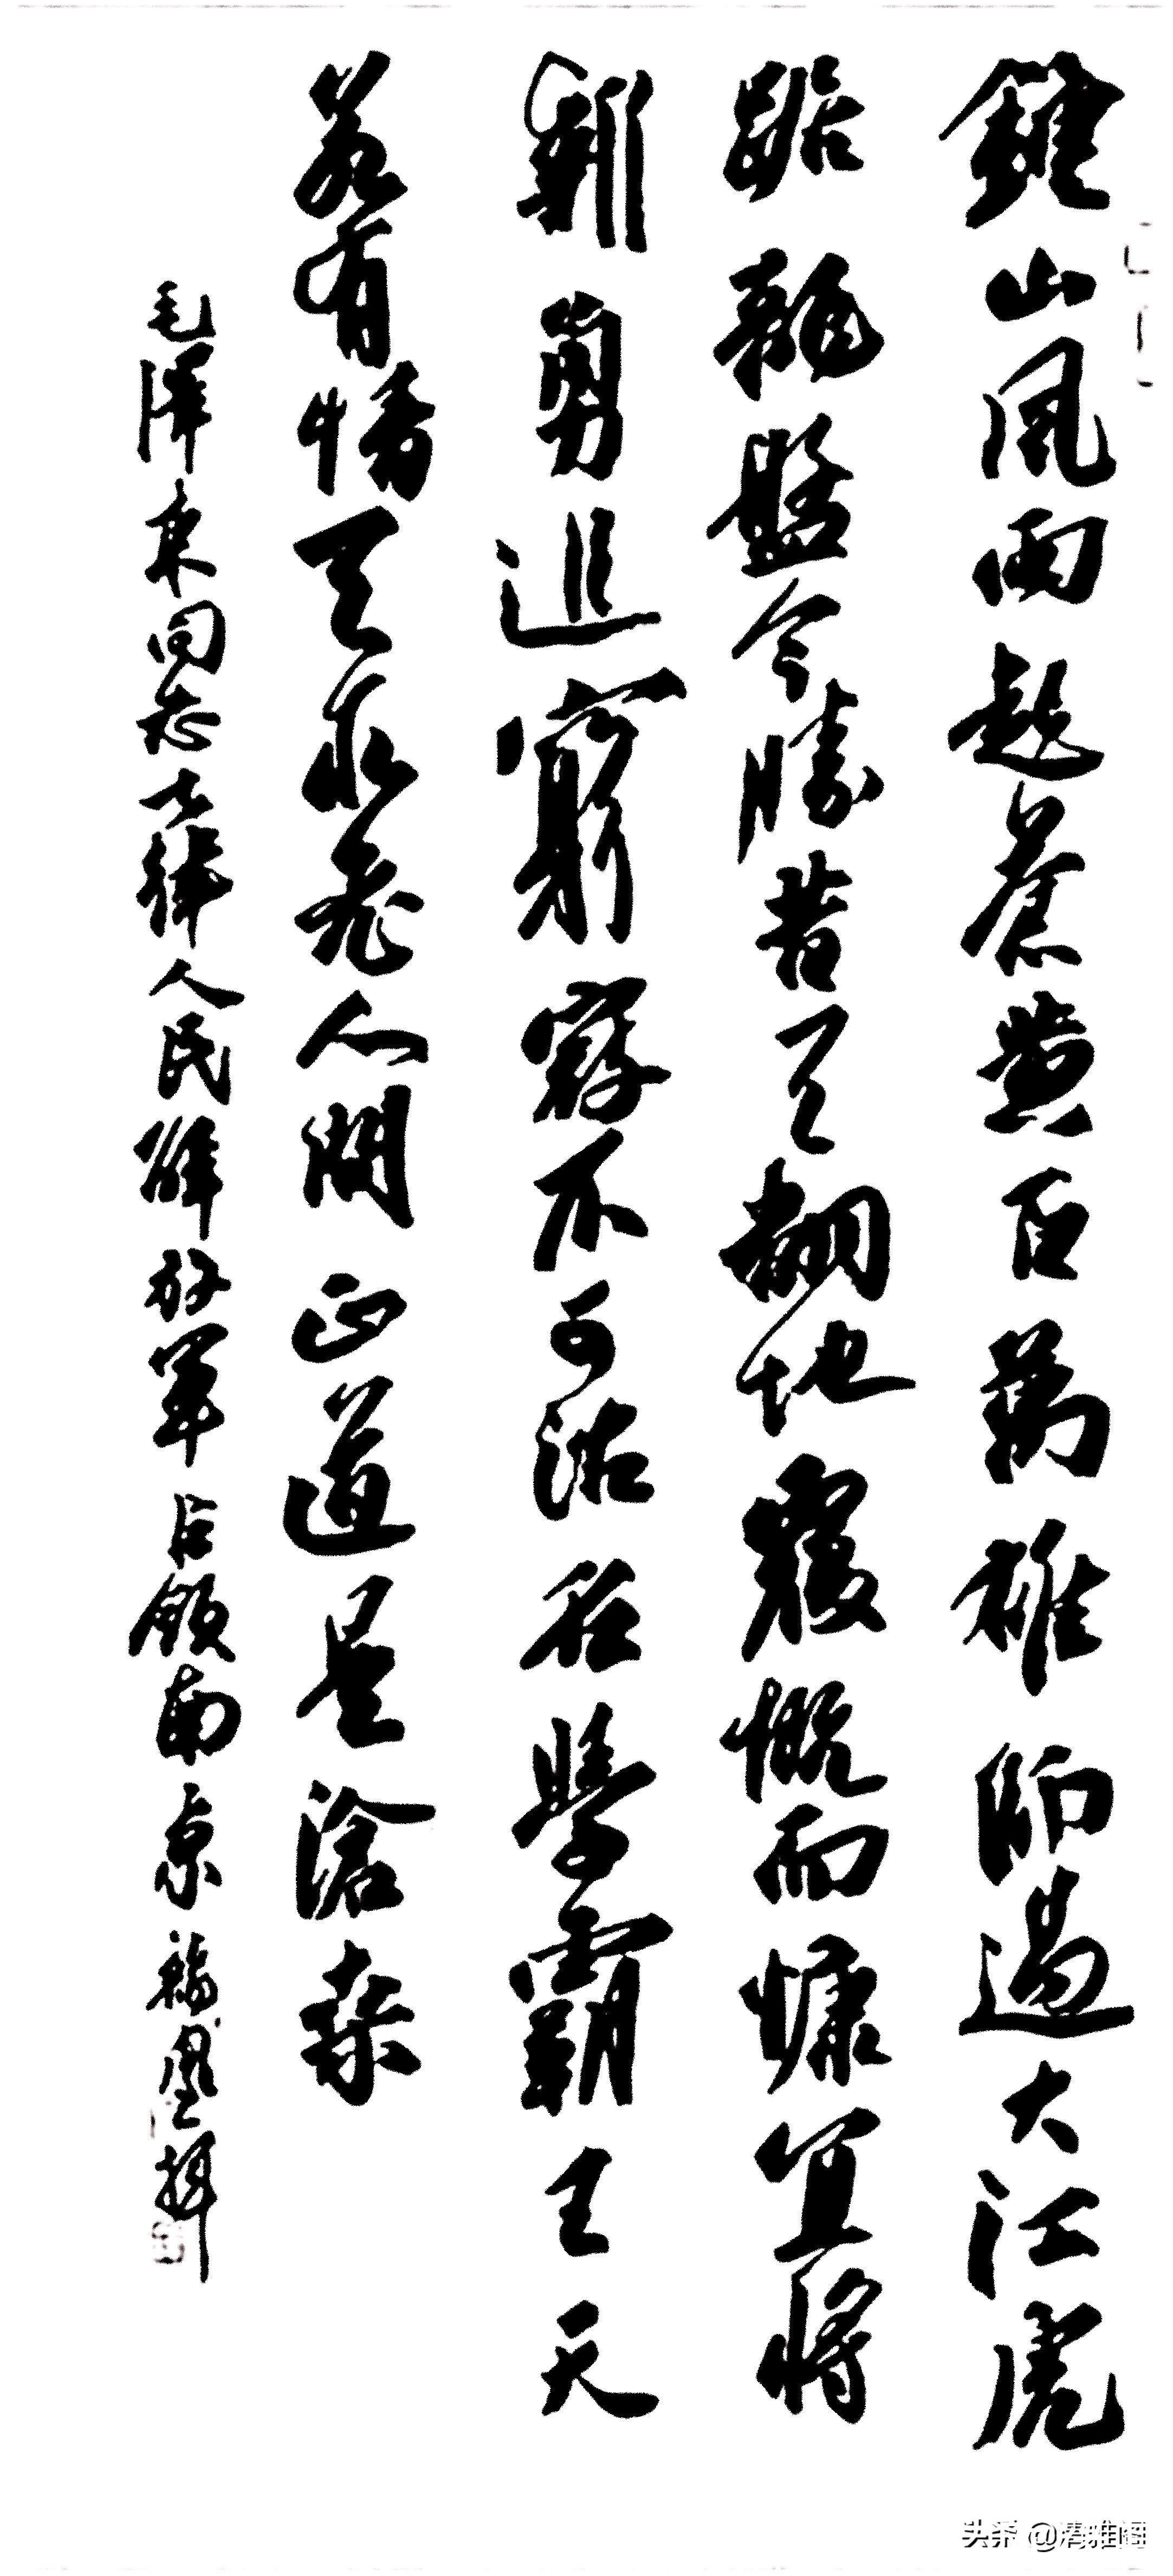 鍾山風雨起蒼黄百萬雄師過大江虎
踞龍盤今勝昔天翻地覆慨而慷宜將
剩勇追窮寇不可沽名學霸王天
若有情天亦老人間正道是滄桑
毛澤東同志七律人民解放軍占領南京
头条 @清雅阁